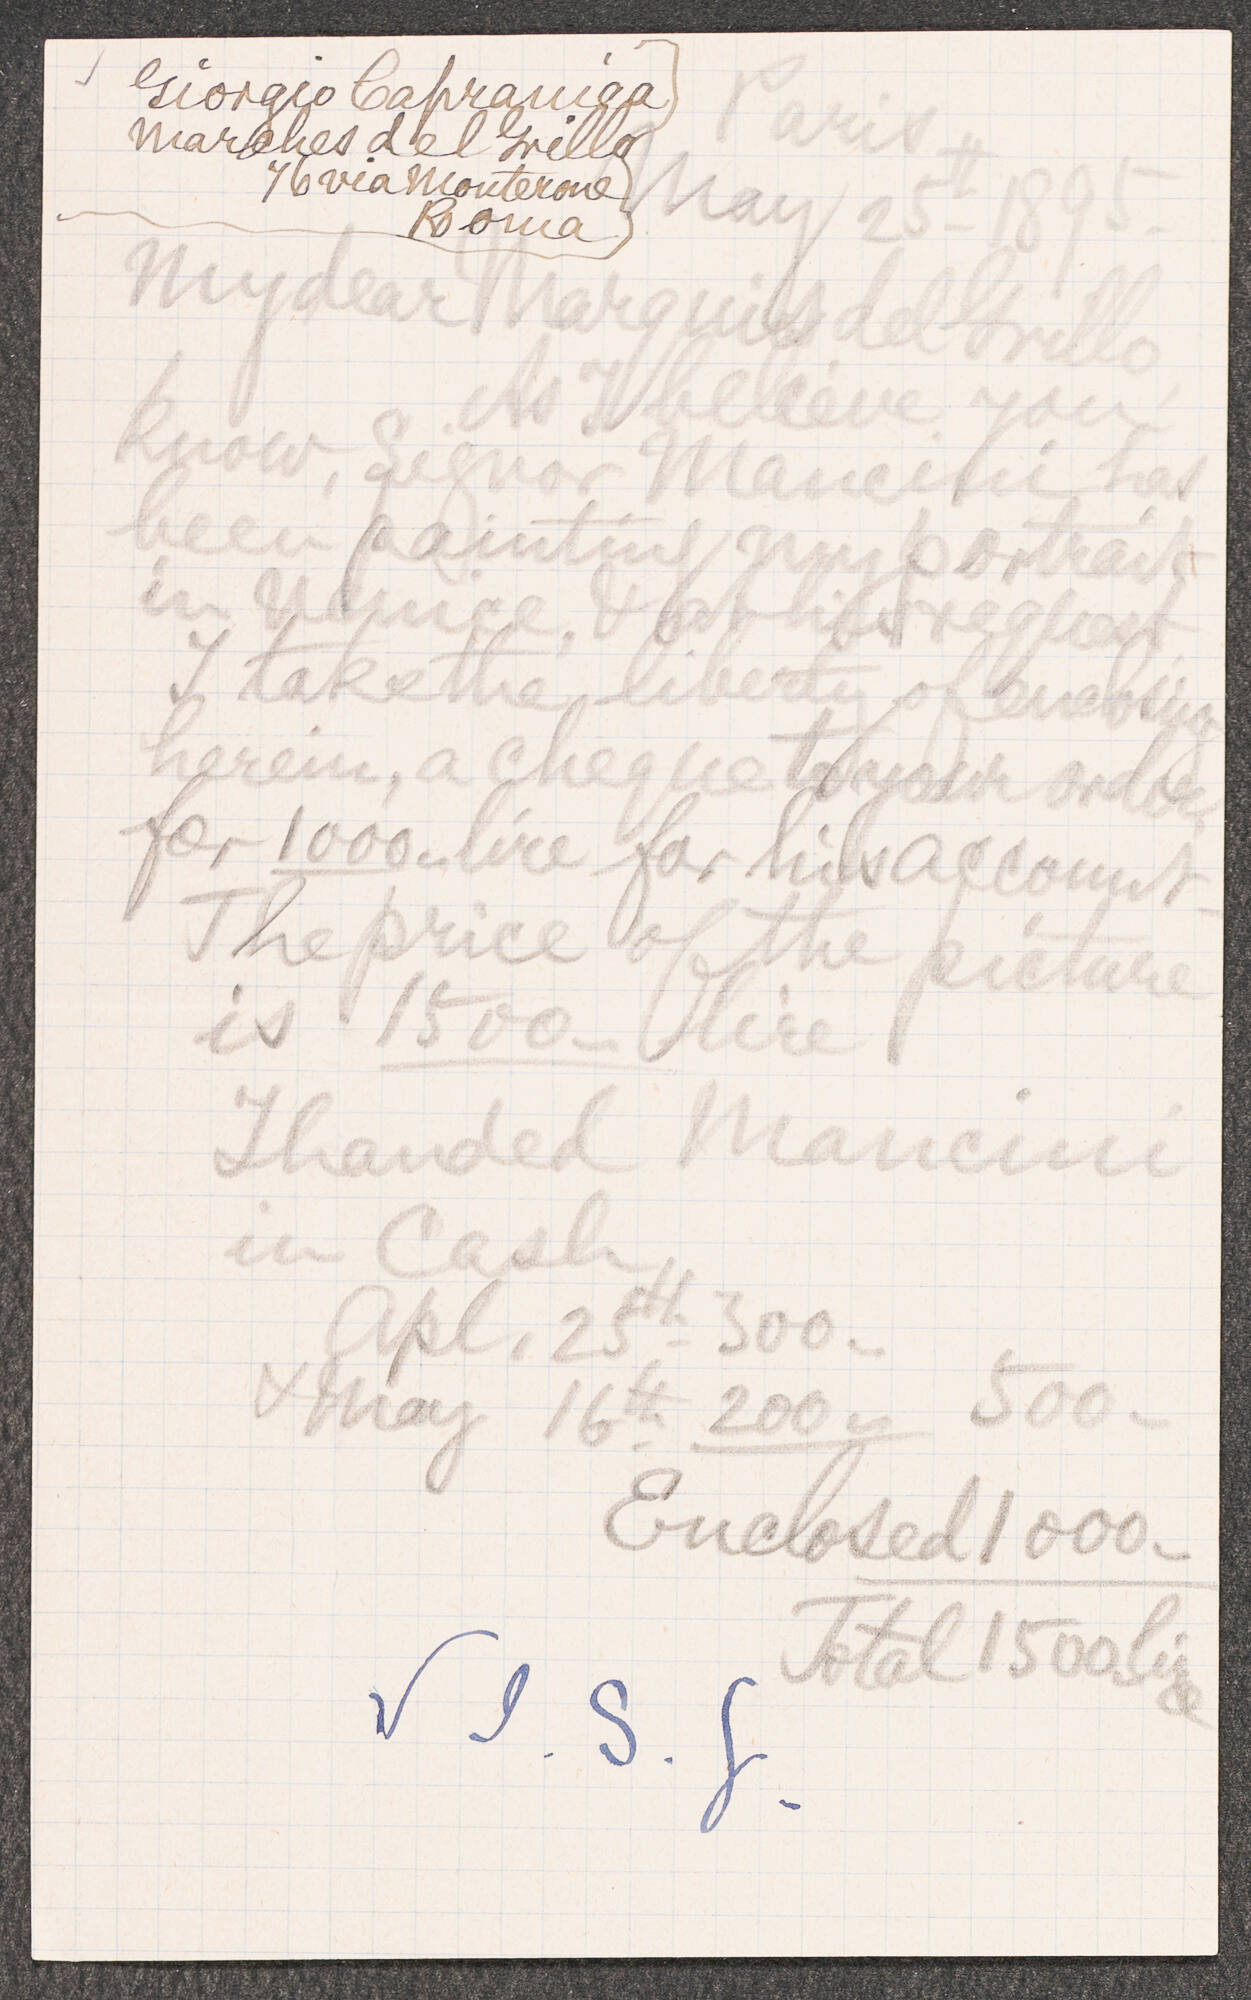 Giorgio Capraniga
Marches del Grillo
76 via Monterone
Roma
Paris
May 25th 1895.
My dear Marquis del Grillo,
As I believe you
know, Signor Mancini has
been painting my portrait
in Venice, & at his request
I take the liberty of enclosing
herein, a cheque to your order
for 1000 lire for his account
The price of the picture
is 1500 lire
I handed Mancini
in Cash
Apl. 25th 300
& May 16th 200 500
Enclosed 1000
Total 1500 lire
√ I. S. G.